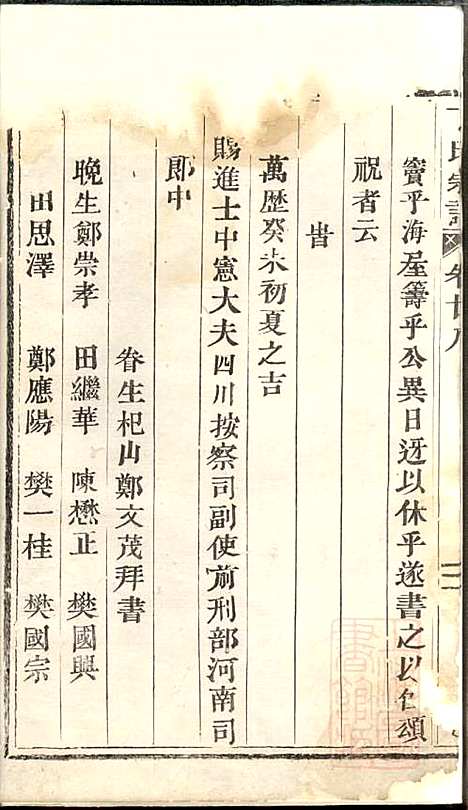 賓乎海屋籌乎公異日迓以休乎遂書之以仁頌
祝者云
旹
萬歷癸未初夏之吉
賜進士中憲大夫四川按察司副使前刑部河南司
郎中
眷生杞山鄭文茂拜書
晚生鄭崇孝 田繼華 陳懋正 樊國興
田思澤 鄭應陽 樊一桂 樊國宗
氏宗譜 卷廿八